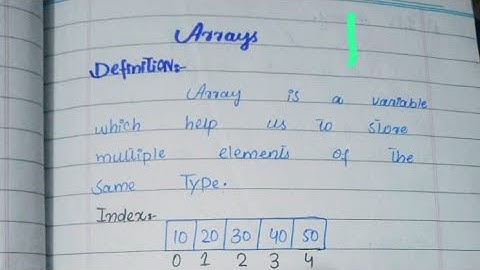 Arrays
Definition:-
Array is a variable
which help us to store
multiple elements of the
same Type.
Index:-
10 20 30 40 50
0 1 2 3 4